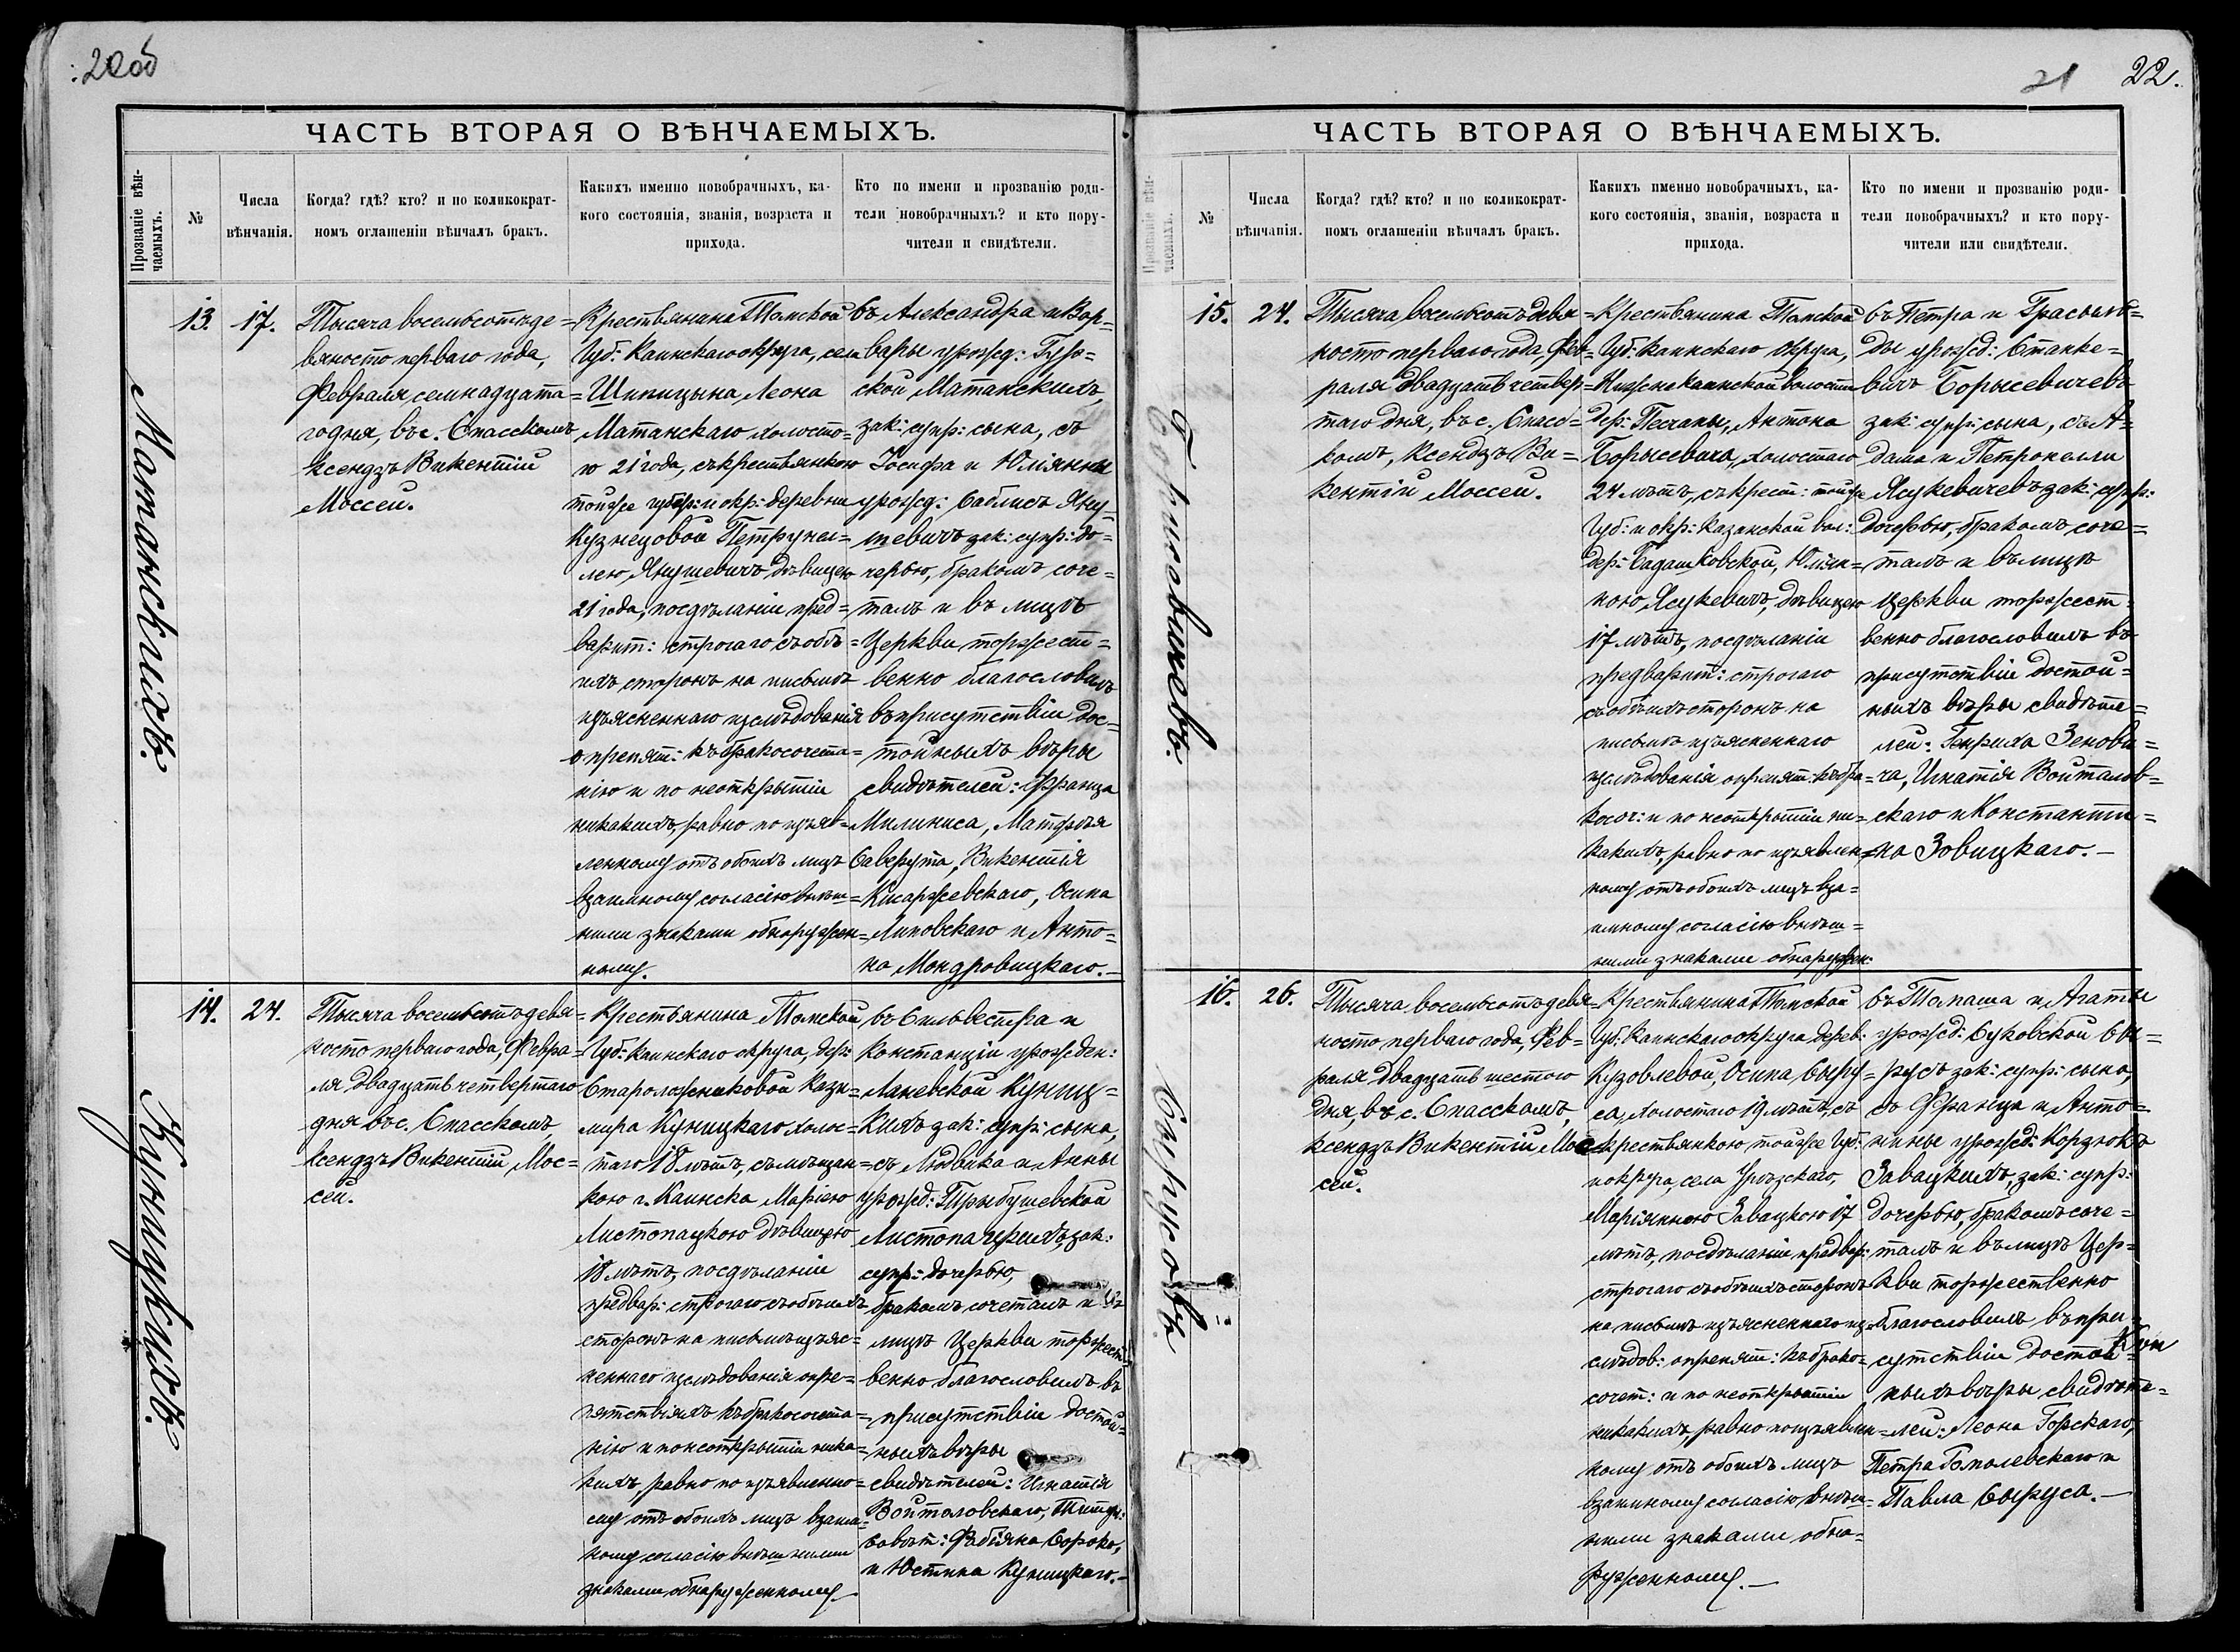 20об
ЧАСТЬ ВТОРАЯ О ВѢНЧАЕМЫХЪ.
Прозваніе вѣн-
чаемыхъ.
№
Числа
вѣнчанія.
Когда? гдѣ? кто? и по коликократ-
номъ оглашеніи вѣнчалъ бракъ.
Какихъ именно новобрачныхъ, ка-
кого состоянія, званія, возраста и
прихода.
Кто по имени и прозванію роди-
тели новобрачныхъ? и кто пору-
чители и свидѣтели.
Матанскихъ.
13.
17.
Тысяча восемьсотъ де=
вяносто перваго года,
Февраля, семнадцата=
го дня, въ с. Спасскомъ
Ксендзъ Викентій
Моссей.
Крестьянина Томской
Губ: Каинскаго округа, села
Шипицына, Леона
Матанскаго холосто=
го 21 года, съ крестьянкою
тойже губер: и окр: деревни
Кузнецовой Петрунел=
лею, Янушевичъ дѣвицею
21 года, по сдѣланіи пред=
варит: строгаго съ обѣ=
ихъ сторонъ на письмѣ
изъясненнаго изслѣдованія
о препят: къ бракосочета=
нію и по неоткрытіи
никакихъ, равно по изъяв=
ленному отъ обоихъ лицъ
взаимному согласію внѣш=
ними знаками обнаружен=
ному.
въ Александра и Вар=
вары урожд: Гур=
ской Матанскихъ,
зак: супр: сына, съ
Іосифа и Юліянны
урожд: Саблисъ Яну=
шевичъ зак: супр: до=
черью, бракомъ соче=
талъ и въ лицѣ
Церкви торжест=
венно благословилъ
въ присутствіи дос=
тойныхъ вѣры
свидѣтелей: Франца
Милиниса, Матфѣя
Саверута, Викентія
Кисаржевскаго, Осипа
Липовскаго и Анто=
на Мондровицкаго.—
Куницкихъ.
14.
24.
Тысяча восемьсотъ девя=
носто перваго года, Февра=
ля двадцать четвертаго
дня въ с. Спасскомъ,
Ксендзъ Викентій Мос=
сей.
Крестьянина Томской
Губ: Каинскаго округа, дер:
Казы=
мира Куницкаго холос=
таго 18 лѣтъ, съ мѣщан=
кою г. Каинска Маріею
Листопацкою дѣвицею
18 лѣтъ, по сдѣланіи
предвар: строгаго съ обѣихъ
сторонъ на письмѣ изъяс=
неннаго изслѣдованія о пре=
пятствіяхъ къ бракосочета=
нію и по неоткрытіи ника=
кихъ, равно по изъявленно=
му отъ обоихъ лицъ взаим=
ному согласію внѣшними
знаками обнаруженному.
въ Сильвестра и
Констанціи урожден:
Ланевской Куниц=
кихъ зак: супр: сына,
съ Людвика и Анны
урожд: Трыбушевской
Листопацкихъ, зак:
супр: дочерью,
бракомъ сочеталъ и въ
лицѣ Церкви торжест=
венно благословилъ въ
присутствіи достой=
ныхъ вѣры
свидѣтелей: Игнатія
Войталовскаго,
Фабіяна Сороко,
и Юстина Куницкаго.—
21
22.
ЧАСТЬ ВТОРАЯ О ВѢНЧАЕМЫХЪ.
Прозваніе вѣн-
чаемыхъ.
№
Числа
вѣнчанія.
Когда? гдѣ? кто? и по коликократ-
номъ оглашеніи вѣнчалъ бракъ.
Какихъ именно новобрачныхъ, ка-
кого состоянія, званія, возраста и
прихода.
Кто по имени и прозванію роди-
тели новобрачныхъ? и кто пору-
чители или свидѣтели.
Борысевичевъ.
15.
24.
Тысяча восемьсотъ девя=
носто перваго года, Фев=
раля двадцать четвер=
таго дня, въ с. Спасс=
комъ, Ксендзъ Ви=
кентій Моссей.
Крестьянина Томской
Губ: Каинскаго округа,
Нижнекаинской волости
дер: Песчаны, Антона
Борысевича, холостаго
24 лѣтъ, съ крест: тойже
Губ: и окр: Казанской вол:
дер: Бадашковской, Юліян=
ною Яцукевичъ, дѣвицею
17 лѣтъ, по сдѣланіи
предварит: строгаго
съ обѣихъ сторонъ на
письмѣ изъясненнаго
изслѣдованія о препят: къ бра=
косоч: и по неоткрытіи ни=
какихъ, равно по изъявлен=
ному отъ обоихъ лицъ вза=
имному согласію внѣш=
ними знаками обнаружен:
въ Петра и Грасыль=
ды урожд: Станке=
вичъ Борысевичевъ
зак: супр: сына, съ А=
дама и Петронелли
Яцукевичевъ зак: супр:
дочерью, бракомъ соче=
талъ и въ лицѣ
Церкви торжест=
венно благословилъ въ
присутствіи достой=
ныхъ вѣры свидѣте=
лей: Генриха Зенови=
ча, Игнатія Войталов=
скаго и Константи=
на Зовицкаго.—
Сырусовъ.
16.
26.
Тысяча восемьсотъ девя=
носто перваго года, Фев=
раля двадцать шестого
дня, въ с. Спасскомъ,
Ксендзъ Викентій Мос=
сей.
Крестьянина Томской
Губ: Каинскаго округа дерев:
Кузовлевой, Осипа Сыру=
са, холостаго 19 лѣтъ, съ
крестьянкою тойже Губ:
и округа, села Угоьзскаго,
Маріянною Завацкою 17
лѣтъ, по сдѣланіи предвар:
строгаго съ обѣихъ сторонъ
на письмѣ изъясненнаго из=
слѣдов: о препят: къ брако=
сочет: и по неоткрытіи
никакихъ, равно по изъявлен=
ному отъ обоихъ лицъ
взаимному согласію внѣш=
ними знаками обна=
руженному.—
въ Томаша и Агаты
урожд: Буковской Сы=
русъ зак: супр: сына,
съ Франца и Анто=
нины урожд: Кордюкъ
Завацкихъ, зак: супр:
дочерью, бракомъ соче=
талъ и въ лицѣ Цер=
кви торжественно
благословилъ въ при=
сутствіи достой=
ныхъ вѣры свидѣте=
лей: Леона Горскаго,
Петра Гомолевскаго и
Павла Сыруса.—